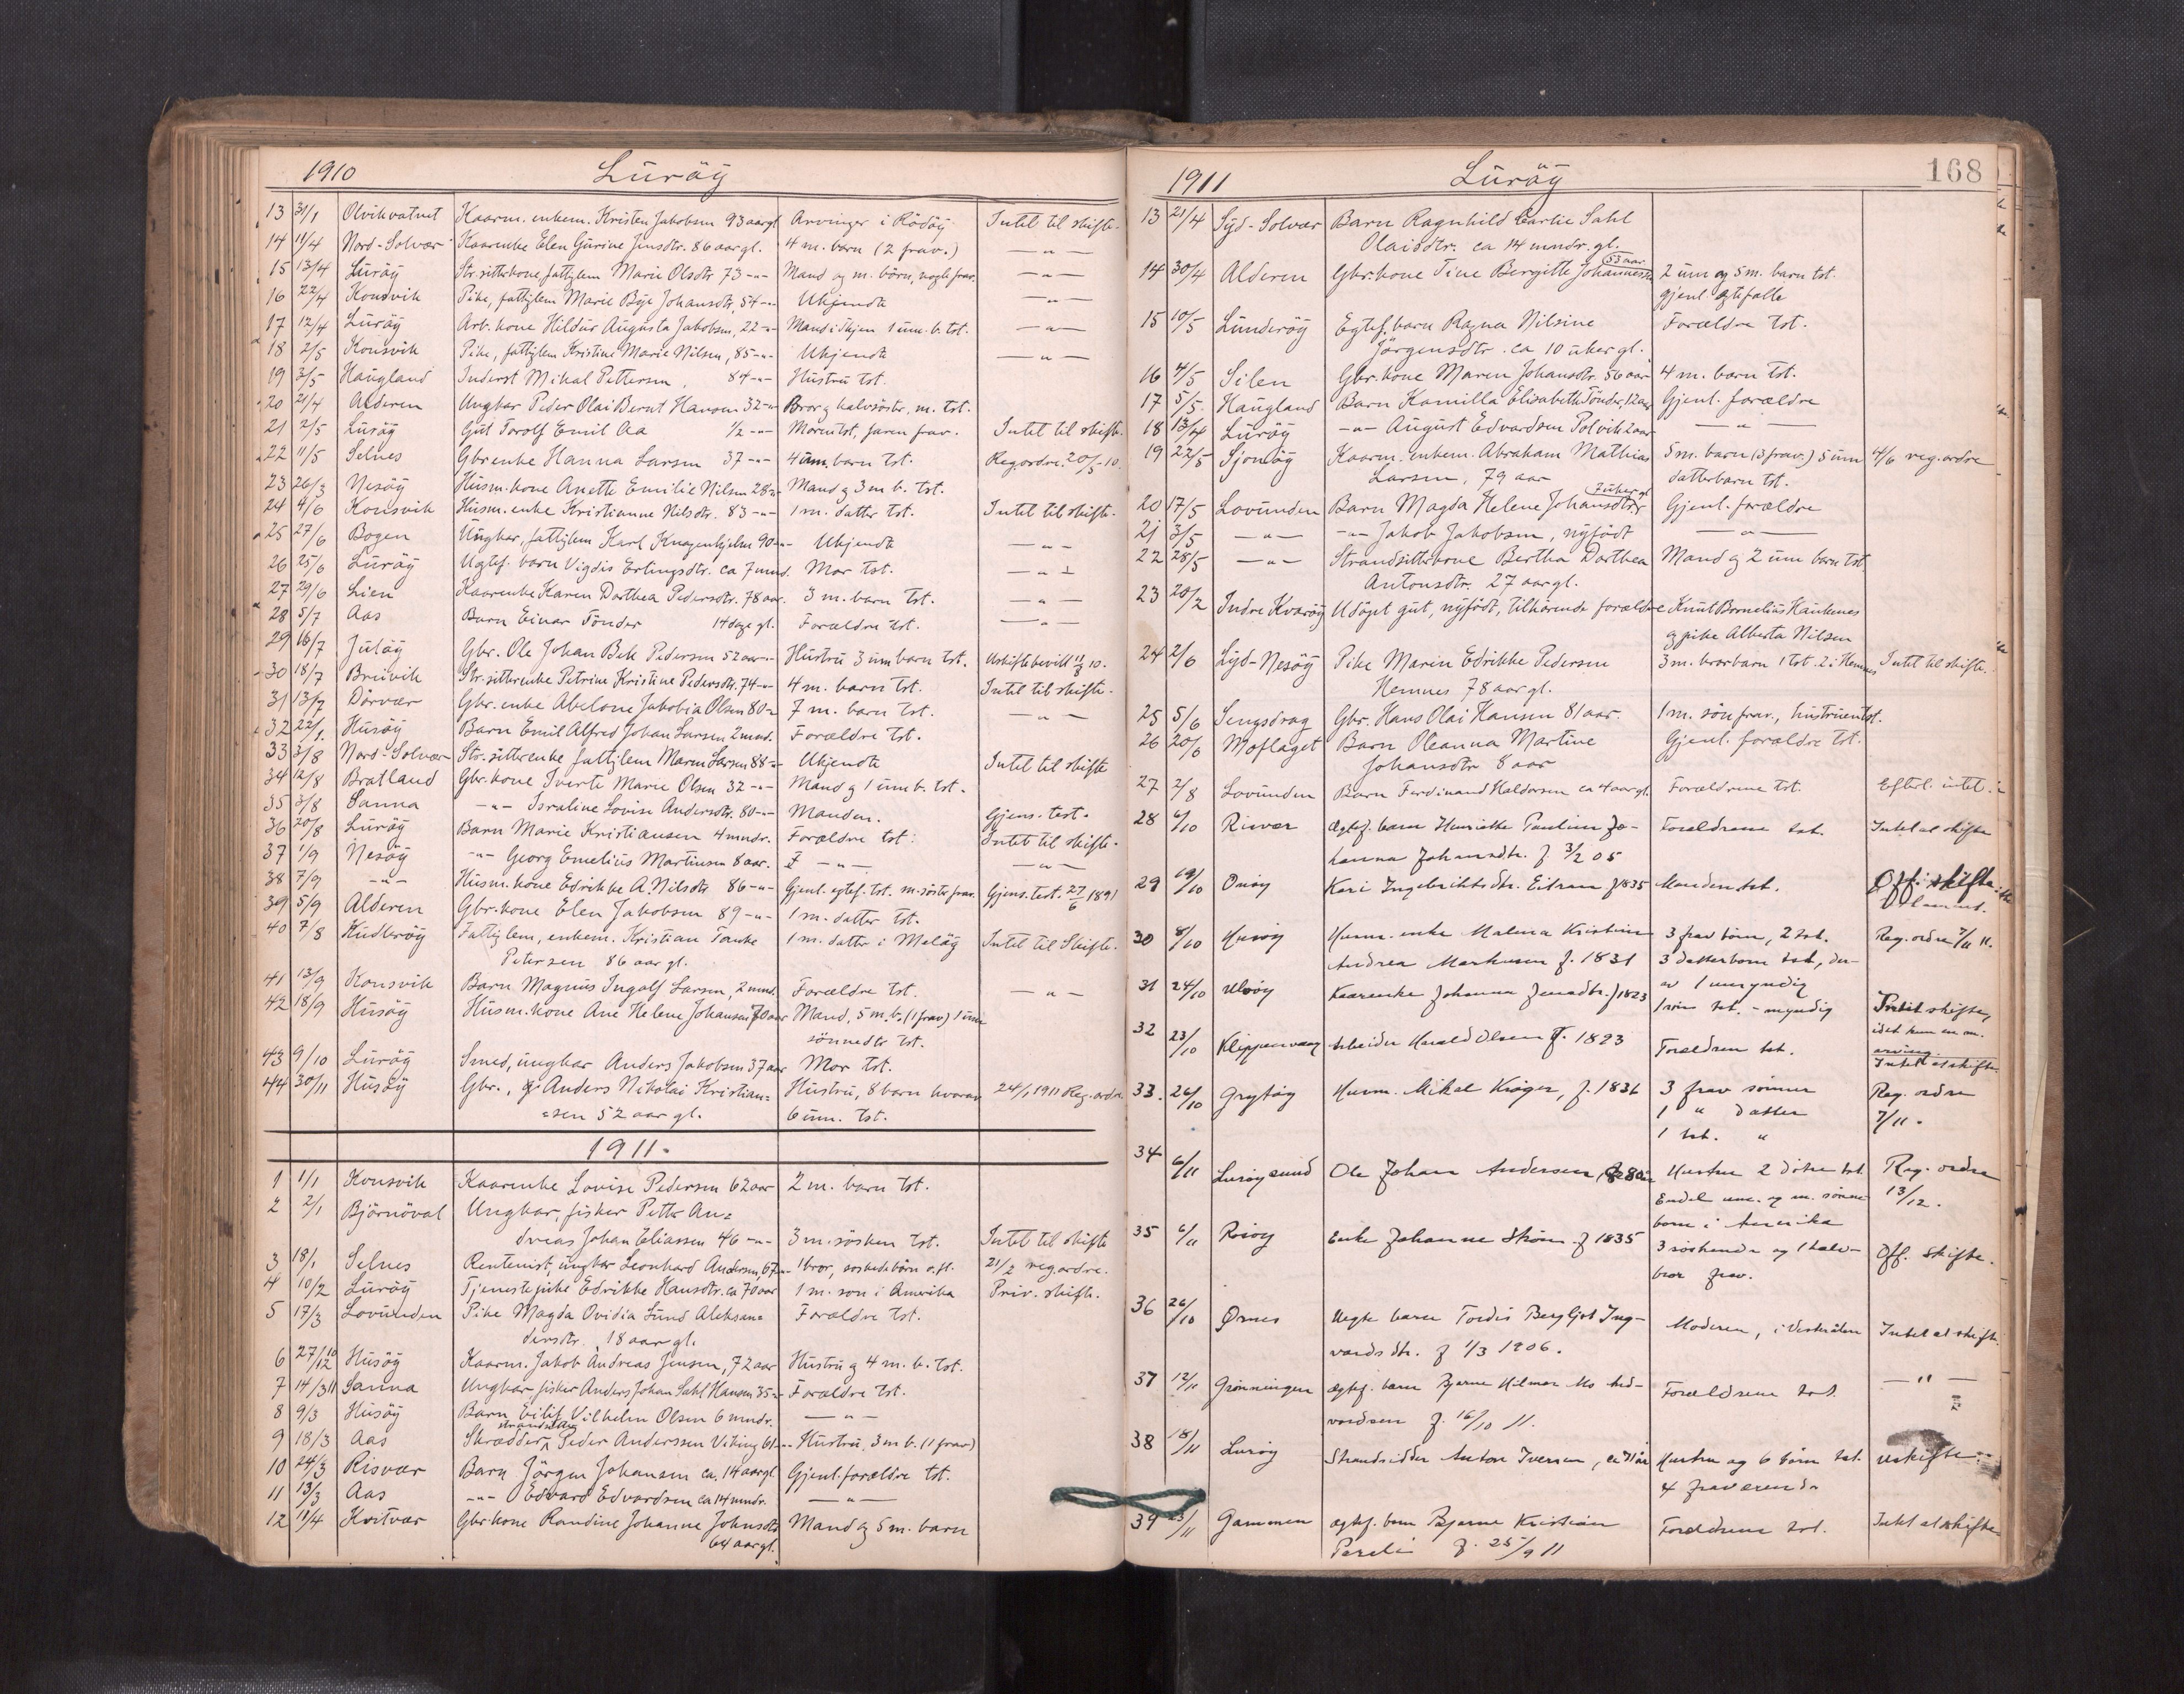 1910 Luröy
13 31/1 Olvikvatnet Kaarm. enkem. Kristen Jakobsen 93 aar gl Arvinger i Rödöy Intet til skifte.
14 11/4 Nord-Solvær Kaarenke Elen Gurine Jensdtr. 86 aar gl. 4 m. barn (2 frav.) —"—
15 13/4 Luröy Str. sitterkone, fattiglem Marie Olsdtr 73 -"- Mand og m. börn, nogle frav. —"—
16 22/4 Konsvik Pike, fattiglem Marie Johansdtr, 54 -"- Ukjendt —"—
17 12/4 Luröy Arb. kone Hildur Augusta Jakobsen, 22 -"- Mand i Skjen 1 um. b. tst. —"—
18 2/5 Konsvik Pike, fattiglem Kristine Marie Nilsen, 85 -"- Ukjendt —"—
19 3/5 Haugland Inderst Mikal Pettersen, 84 -"- Hustru tst.
20 21/4 Alderen Ungkar Peder Olai Bernt Hansen 32 -"- Bror og halvsöster, m. tst.
21 2/5 Luröy Gut Torolf Emil Aa 1/2 -"- Moren tst, faren frav. Intet til skifte.
22 11/5 Selnes Gbrenke Hanna Larsen 37 -"- 4 um. barn tst. Reg ordre. 20/5-10.
23 26/3 Nesöy Husm. kone Anette Emilie Nilsen 28 -"- Mand og 3 m b. tst.
24 4/6 Konsvik Husm. enke Kristianne Nilsdtr. 83 -"- 1 m. datter tst. Intet til skifte.
25 27/6 Bogen Ungkar, fattiglem Karl Knagenhjelm 90 -"- Ukjendt —"—
26 25/6 Luröy Uegtef. barn Vigdis Erlingsdtr. ca 7 mnd. Mor tst. —"—
27 29/6 Lien Kaarenke Karen Dorthea Pedersdtr. 78 aar. 3 m. barn tst. —"—
28 5/7 Aas Barn Einar Tönder 14 dage gl. Forældre tst. —"—
29 16/7 Juløy Gbr. Ole Johan Bek Pedersen 52 aar -"- Hustru 3 um barn tst. Uskiftebevill 11/8 10.
30 18/7 Bruvik Str. sitterenke Petrine Kristine Pedersdtr. 74 -"- 4 m. barn tst. Intet til skifte.
31 13/7 Dörvær Gbr. enke Abelone Jakobia Olsen 80 -"- 7 m. barn tst. —"—
32 22/1. Husöy Barn Emil Alfred Johan Larsen 2 mnd. Forældre tst.
33 3/8 Nord-Solvær Str. sitterenke fattiglem Maren Larsen 88 -"- Ukjendt Intet til skifte
34 12/8 Bratland Gbr. kone Iverte Marie Olsen 32 -"- Mand og 1 um b. tst.
35 3/8 Sanna -"- Israline Lovise Andersdtr. 80 -"- Manden. Gjens. test.
36 20/8 Luröy Barn Marie Kristiansen 4 mndr. Forældre tst. Intet til skifte.
37 1/9 Nesöy -"- Georg Emelius Martinsen 8 aar. —"— —"—
38 7/9 -"- Husm. kone Edrikke A. Nilsdtr 86 -"- Gjenl. egtef. tst. m. söster frav. Gjens. test. 27/6 1891
39 5/9 Alderen Gbr. kone Elen Jakobsen 89 -"- 1 m. datter tst.
40 7/8 Kudleröy Fattiglem, enkem. Kristian Tanke 1 m. datter i Melöy Intet til Skifte.
Petersen 86 aar gl.
41 13/9 Konsvik Barn Magnus Ingolf Larsen, 2 mnd. Forældre tst. —"—
42 18/9 Husöy Husm. kone Ane Helene Johansen 70 aar Mand, 5 m. b. (1 frav) 1 um
sönnedtr tst.
43 9/10 Luröy Smed, ungkar Anders Jakobsen 37 aar Mor tst.
44 30/11 Husöy Gbr., Anders Nikolai Kristian= Hustru, 8 barn hvorav 24/1 1911 Reg. ordre
=sen 52 aar gl. 6 um. tst.
1911.
1 1/1 Konsvik Kaarenke Lovise Pedersen 62 aar 2 m. barn tst.
2 2/1 Björnöval Ungkar, fisker Petter An=
dreas Johan Eliassen 46 -"- 3 m. sösken tst. Intet til skifte
3 18/1 Selnes Rentenist, ungkar Leonhard Andersen, 67 -"- 1 bror, soskedebörn o. fl. 21/2 reg ordre.
4 10/2 Luröy Tjenestepike Edrikke Hansdtr. ca 70 aar 1 m. son i Amerika Priv. skifte.
5 17/3 Lovunden Pike Magda Ovidia Lund Aleksan= Forældre tst.
dersdtr. 18 aar gl.
6 27/12 10 Husöy Kaarm. Jakob Andreas Jensen, 72 aar Hustru og 4 m. b. tst.
7 14/3 11 Sanna Ungkar, fisker Anders Johan Sahl Hansen 35 -"- Forældre tst.
8 9/3 Husöy Barn Eilif Vilhelm Olsen 6 mndr. —"—
9 18/3 Aas Skrædder strandsitter Peder Anderssen Viking 61 -"- Hustru, 3 m b. (1 frav)
10 24/3 Risvær Barn Jörgen Johansen ca. 14 aar gl. Gjenl. forældre tst.
11 13/3 Aas -"- Edvard Edvardsen ca 14 mndr. —"—
12 11/4 Kvitvær Gbr kone Randine Johanne Johnsdtr Mand og 5 m. barn
64 aar gl.
1911 Luröy 168
13 21/4 Syd-Solvær Barn Ragnhild Carlie Sahl
Olaisdtr. ca 14 mndr. gl.
14 30/4 Alderen Gbr. kone Tine Bergitte Johannesdtr 53 aar 2 um og 5 m. barn tst.
gjenl. egtefælle
15 10/5 Lunderöy Egtef. barn Ragna Nilsine Forældre tst.
Jörgensdtr. ca 10 uker gl.
16 4/5 Silen Gbr. kone Maren Johansdtr. 56 aar 4 m. barn tst.
17 5/5. Haugland Barn Kamilla Elisabeth Tönder, 12 aar Gjenl. forældre
18 13/4 Luröy -"- August Edvardsen Polvik 2 aar —"—
19 22/5 Sjonöy Kaarm. enkem. Abraham Mathias 5 m. barn (3 frav.) 5 um 4/6 reg. ordre
Larsen, 79 aar datterbarn tst.
20 17/5 Lovunden Barn Magda Helene Johansdtr 7 uker gl Gjenl. forældre
21 3/5 —"— -"- Jakob Jakobsen, nyfödt —"—
22 28/5 —"— Strandsitterkone Bertha Dorthea Mand og 2 um barn tst
Antonsdtr. 27 aar gl.
23 20/2 Indre Kvaröy Udöpt gut, nyfödt, tilhörende forældre Knut Bornelius Haukenes
og pike Alberta Nilsen
24 2/6 Syd-Nesöy Pike Maren Edrikke Pedersen 3 m. brorbarn 1 tst. 2 i Hemnes Intet til skifte.
Hemnes 78 aar gl.
25 5/6 Sengsdrag Gbr. Hans Olai Hansen 81 aar. 1 m. sön frav., hustruen tst.
26 20/6 Moflaget Barn Oleanna Martine Gjenl. forældre tst.
Johansdtr 8 aar
27 2/8 Lovunden Barn Ferdinand Haldorsen ca 4 aar gl. Forældrene tst. Efterl. intet.
28 6/10 Risvær Ægtef. barn Henriette Pauline Jo- Forældrene tst. Intet at skifte
hanna Johansdtr. f 3/2 05
29 19/10 Onöy Kari Ingebriktsdtr. Eitran f 1835 Manden tst. Off. skifte
30 8/10 Husöy Husm. enke Malena Kristine 3 frav börn, 2 tst. Reg. ordre 7/11 11.
Andrea Markusen f. 1831 3 datterbörn tst, der-
av 1 umyndig
31 24/10 Ulvöy Kaarenke Johanna Jensdtr. f 1823 1 sön tst. - myndig Intet skifte,
idet kun en m.
arving.
32 23/10 Klippenvaag Arbeider Harald Olsen f. 1893 Forældrene tst. Intet at skifte.
33. 26/10 Grytöy Husm. Mikal Kröger, f. 1836 3 frav sönner Reg. ordre
1 " datter 7/11.
1 tst. "
34 6/11 Luröysund Ole Johan Andersen, 80 aar Hustru 2 dötre tst Reg. ordre
Endel um. og m. sönne- 13/12.
born i Amerika
35 6/11 Rosöy Enke Johanne Skön f 1835 3 söskende og 1 halv- Off. skifte.
bror frav.
36 26/10 Ørnes Uegte barn Tordis Bergljot Ing- Moderen, i Vesterålen Intet at skifte.
vardsdtr. f 1/3 1906.
37 12/11 Grønningen Ægtef. barn Bjarne Hilmar Mo hed- Forældrene tst. —"—
vardsen f. 16/10 11.
38 18/11 Luröy Strandsidder Anton Iversen, ca 71 år Hustru og 6 börn tst. uskifte
4 fraværende
39 23/11 Gammen Ægtef. barn Bjarne Kristian Forældrene tst. Intet at skifte
f. 25/9 11